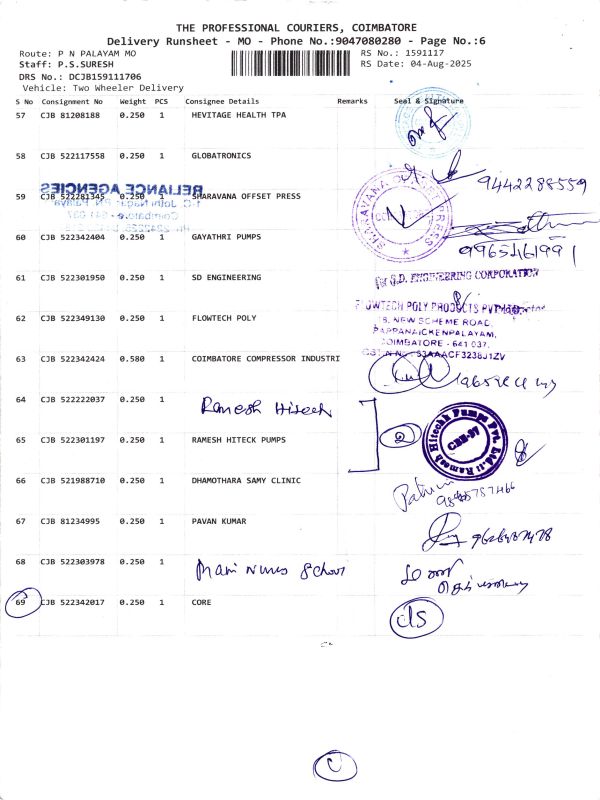 THE PROFESSIONAL COURIERS, COIMBATORE
Delivery Runsheet - MO - Phone No.:9047080280 - Page No.:6
Route: P N PALAYAM MO
RS No.: 1591117
Staff: P.S.SURESH
RS Date: 04-Aug-2025
DRS No.: DCJB159111706
Vehicle: Two Wheeler Delivery
S No Consignment No Weight PCS Consignee Details Remarks Seal & Signature
57 CJB 81208188 0.250 1 HEVITAGE HEALTH TPA
58 CJB 522117558 0.250 1 GLOBATRONICS
9442288559
RELIANCE AGENCIES
59 CJB 522281345 0.250 1 SHARAVANA OFFSET PRESS
60 CJB 522342404 0.250 1 GAYATHRI PUMPS
9965461991
61 CJB 522301950 0.250 1 SD ENGINEERING
for S.D. ENGINEERING CORPORATION
62 CJB 522349130 0.250 1 FLOWTECH POLY
FLOWTECH POLY PRODUCTS PVT
NEW SCHEME ROAD,
PAPPANAICKENPALAYAM,
COIMBATORE - 641 037.
33AAACF3238J1ZV
63 CJB 522342424 0.580 1 COIMBATORE COMPRESSOR INDUSTRI
64 CJB 522222037 0.250 1 Ramesh Hiteck
2
Ramesh Hitechh Pumps Pvt. Ltd.
CBE-37
65 CJB 522301197 0.250 1 RAMESH HITECK PUMPS
66 CJB 521988710 0.250 1 DHAMOTHARA SAMY CLINIC
67 CJB 81234995 0.250 1 PAVAN KUMAR
68 CJB 522303978 0.250 1 Mani Nurs School
69 CJB 522342017 0.250 1 CORE